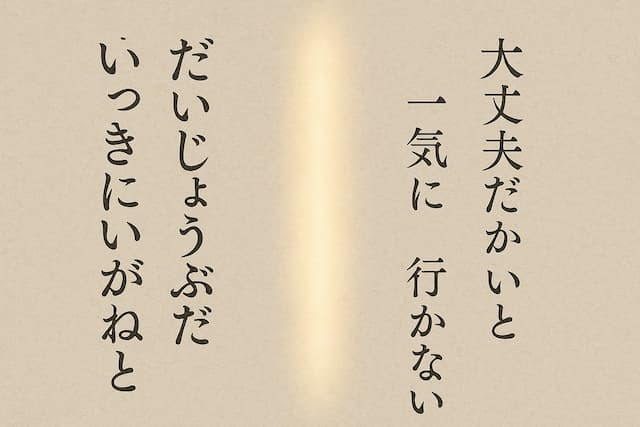 大丈夫だかいと
一気に　行かない
だいじょうぶだ
いっきにいがねと